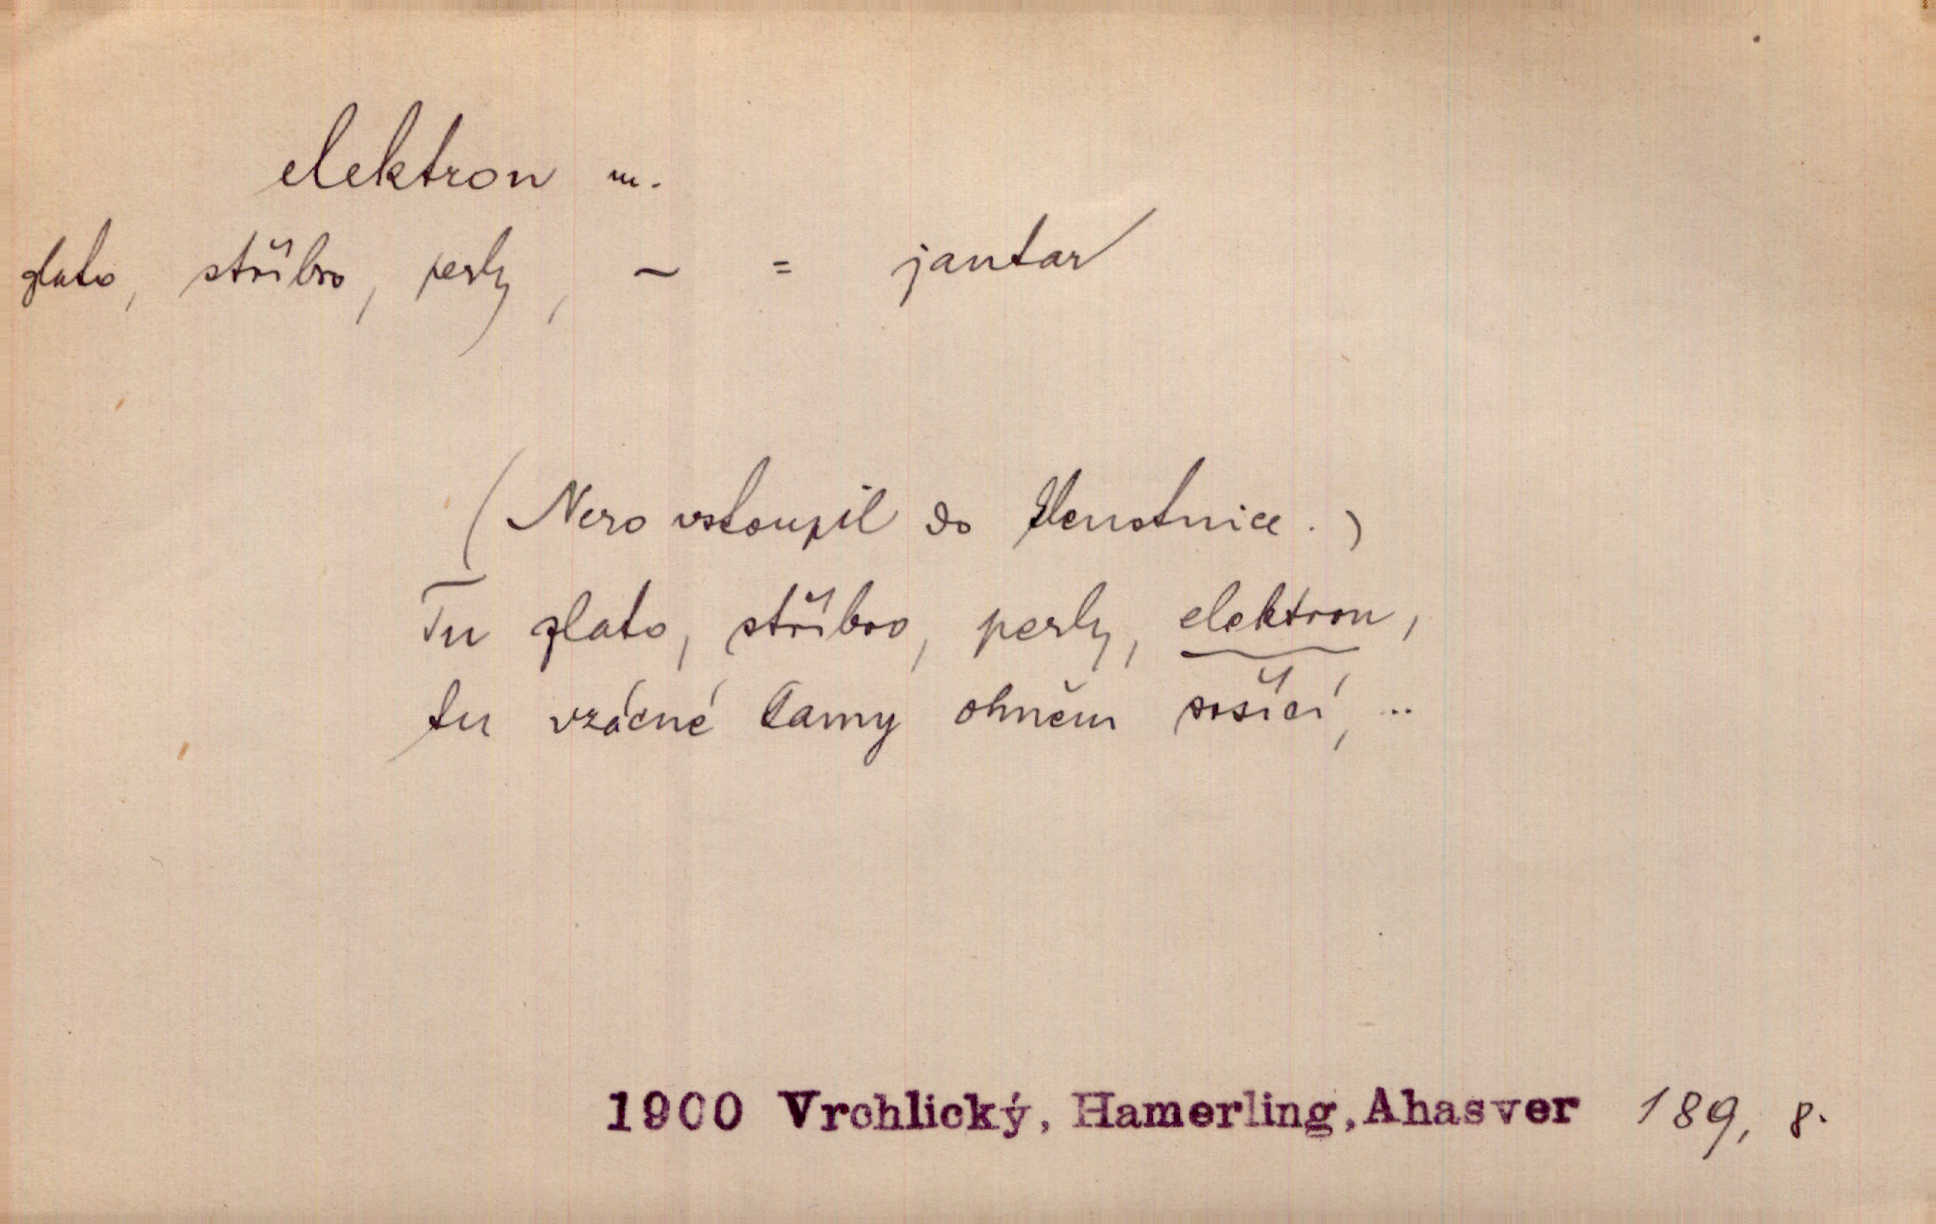 elektron m.
zlato, stříbro, perly, ~ = jantar
(Nero vstoupil do klenotnice.)
Tu zlato, stříbro, perly, elektron,
tu vzácné lamy ohněm sršící, ..
1900 Vrchlický, Hamerling, Ahasver 189, 8.